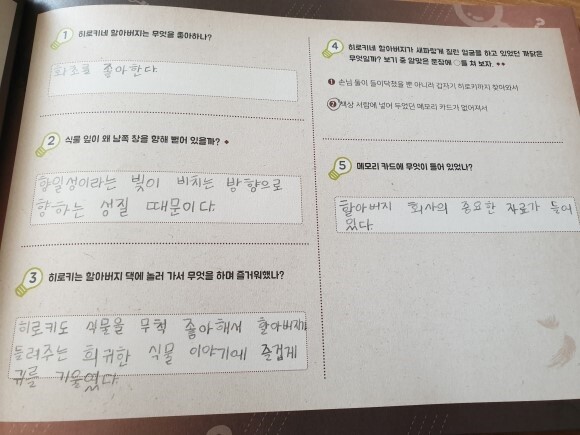 1 히로키네 할아버지는 무엇을 좋아하나?
화초를 좋아한다.
2 식물 잎이 왜 남쪽 창을 향해 뻗어 있을까?
향일성이라는 빛이 비치는 방향으로
향하는 성질 때문이다.
3 히로키는 할아버지 댁에 놀러 가서 무엇을 하며 즐거워했나?
히로키도 식물을 무척 좋아해서 할아버지가
들려주는 희귀한 식물 이야기에 즐겁게
귀를 기울였다.
4 히로키네 할아버지가 새파랗게 질린 얼굴을 하고 있었던 까닭은
무엇일까? 보기 중 알맞은 문장에 ○를 쳐 보자.
❶ 손님 둘이 들이닥쳤을 뿐 아니라 갑자기 히로키까지 찾아와서
❷ 책상 서랍에 넣어 두었던 메모리 카드가 없어져서
5 메모리 카드에 무엇이 들어 있었나?
할아버지 회사의 중요한 자료가 들어
있다.